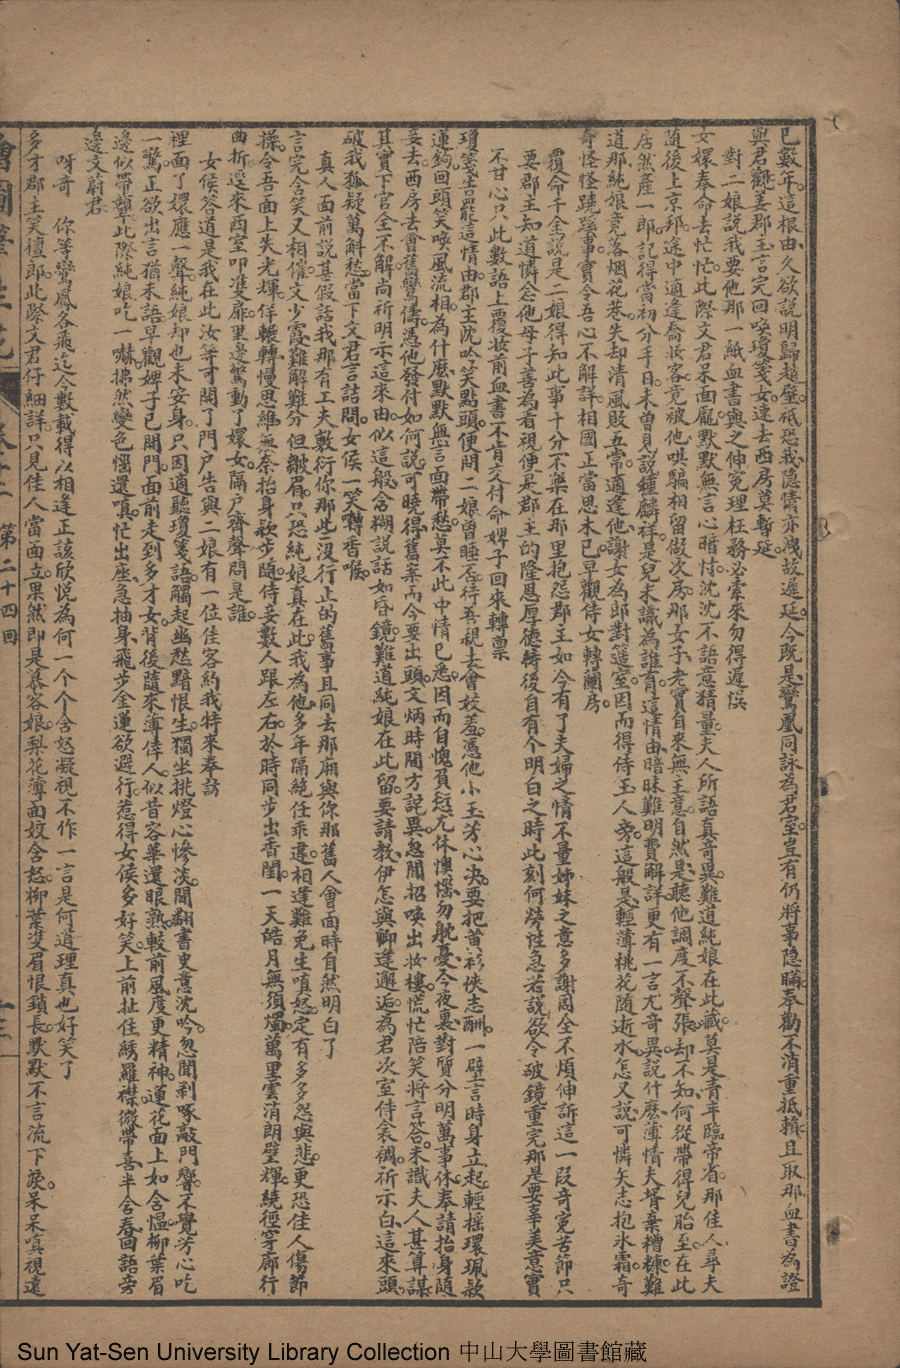 已數年。這根由久欲說明歸趙璧。祇恐我隱情亦洩故遲延。今既是鸞凰同詠為君室。豈有仍將事隐瞞。奉勸不消重抵賴。且取那血書為證
與君觀。美郡主言完回喚瓊箋女。速去西房莫暫延。
對二娘說我要他那一紙血書與之伸冤理枉務必索來勿得遲悞
女嬛奉命去忙忙。此際文君呆面龐。默默無言心暗忖。沈沈不語意猜量。夫人所語真奇異。難道純娘在此藏。莫是青年臨帝省。那佳人尋夫
隨後上京邦。途中適逢喬妆客。竟被他哄騙相留做次房。那女子老實自來無主意。自然是聽他調度不聲張。却不知何從帶得兒胎至。在此
居然產一郎。記得當初分手日。未曾見說種麟祥。是兒未識為誰育。這情由暗昧難明費解詳。更有一言尤奇異。說什麽薄情夫壻棄糟糠。難
道那純娘竟落烟花巷。失却清風敗五常。適逢他謝女為郎對簉室。因而得侍玉人旁。這般是輕薄桃花随逝水。怎又說可憐矢志抱氷霜。奇
奇怪怪蹺蹊事。實令吾心不解詳。相國正當思未已。早觀侍女轉蘭房。
覆命千金說是二娘得知此事十分不樂在那里抱怨郡主如今有了夫婦之情不量姊妹之意多謝周全不煩伸訴這一段奇冤苦節只
要郡主知道憐念他母子善為看視便是郡主的隆恩厚德轉後自有个明白之時此刻何勞性急若說欲令破鏡重完那是要辜美意實
不甘心只此數語上覆妆前血書不肯交付命婢子回來轉稟
瓊箋告罷這情由。郡主沈吟笑點頭。便問二娘曾睡否。待吾親去會姣羞。憑他小玉芳心决。要把黃衫俠志酬。一壁言時身立起。輕摇環珮欵
蓮鉤。回頭笑喚風流相。為什麽默默無言面帶愁。莫不此中情已悉。因而自愧負愆尤。休懊惱。勿躭憂。今夜裏對質分明萬事休。奉請抬身随
妾去。西房去會舊鸞儔。憑他發付如何說。可曉得舊案而今要出頭。文炳時聞方詫異。忽聞招喚出妝樓。慌忙陪笑將言答。未識夫人甚算謀
其實下官全不解。尚祈明示這來由。似這般含糊說話如昏鏡。難道純娘在此留。要請教伊怎與卿逢邂逅。為君次室侍衾裯。祈示白這來頭。
破我狐疑萬斛愁。當下文君言詰問。女侯一笑囀香喉。
真人面前說甚假話我那有工夫敷衍你那些沒行止的舊事且同去那廂與你那舊人會面時自然明白了
言完含笑又相催。文少霞難解難分但皺眉。只恐純娘真在此。我為他多年隔絕任乖違。相逢難免生嗔怒。定有多多怨與悲。更恐佳人傷節
操。今吾面上失光輝。佯輾轉。慢思維。無奈抬身欵步隨。侍妾數人跟左右。於時同步出香閨。一天皓月無須燭。萬里雲消朗壁輝。繞徑穿廊行
曲折。逕來西室叩雙扉。里邊驚動了嬛女。隔户齊聲問是誰
女侯答道是我在此汝等可開了門户告與二娘有一位佳客約我特來奉訪
裡面了嬛應一聲。純娘却也未安身。只因適聽瓊箋語。觸起幽愁黯恨生。獨坐挑燈心慘淡。閒翻書史意沈吟。忽聞剥啄敲門響。不覺芳心吃
一驚。正欲出言猶未語。早觀婢子已開門。面前走到多才女。背後隨來薄倖人。似昔容華還眼熟。較前風度更精神。蓮花面上如含愠。柳葉眉
邊似帶顰。此際純娘吃一嚇。拂然變色惱還嗔。忙出座。急抽身。飛步金蓮欲避行。惹得女侯多好笑。上前扯住綉羅襟。微帶喜。半含春。回語旁
邊文尉君。
呀奇　你等鸞鳳各飛迄今數載得以相逢正該欣悅為何一个个含怒凝視不作一言是何道理真也好笑了
多才郡主笑檀郎。此際文君仔細詳。只見佳人當面立。果然即是慕容娘。梨花薄面姣含怒。柳葉雙眉恨鎖長。默默不言流下淚。呆呆嗔視遠
繪圖筆生花　卷十二　第二十四回　十三
Sun Yat-Sen University Library Collection 中山大學圖書館藏